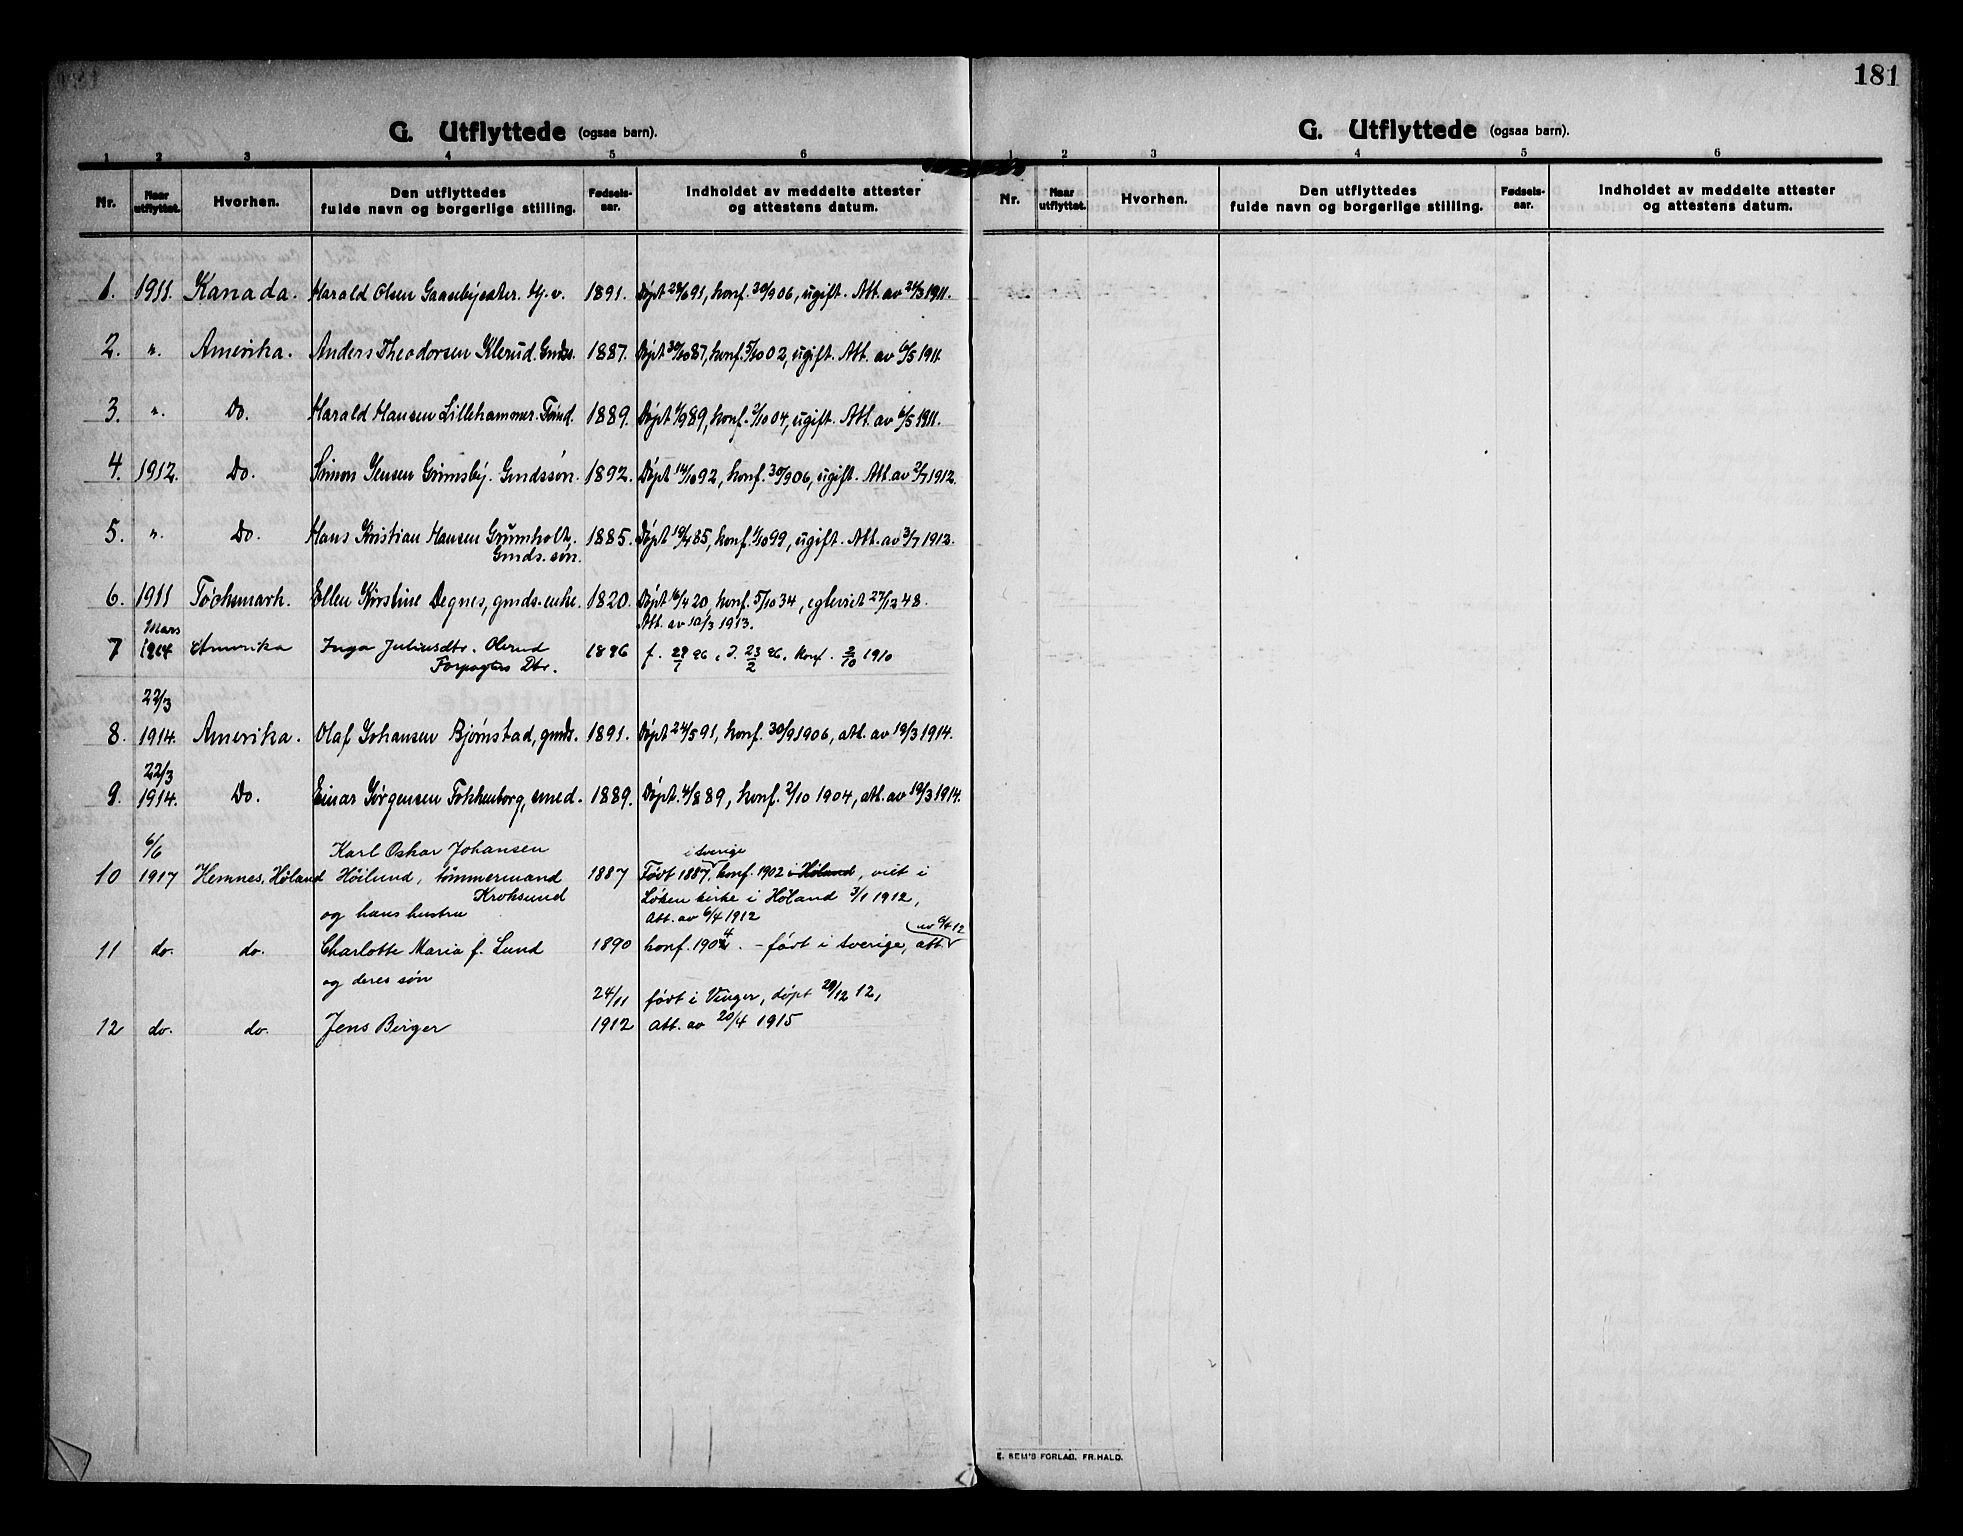 181
G. Utflyttede (ogsaa barn).
1 2 3 4 5 6
Nr. Naar utflyttet. Hvorhen. Den utflyttedes fulde navn og borgerlige stilling. Fødsels-aar. Indholdet av meddelte attester og attestens datum.
1. 1911. Kanada. Harald Olsen Gaasebyeeter. Hj. v. 1891. Døpt 28/6 91, konf. 30/9 06, ugift. Att. av 24/3 1911.
2. ". Amerika. Anders Theodorsen Klerud. Gmds. 1887. Døpt 30/10 87, konf. 5/10 02, ugift. Att. av 6/5 1911.
3. ". Do. Harald Hansen Lillehammer. Tømd. 1889. Døpt 1/9 89, konf. 2/10 04, ugift. Att. av 6/5 1911.
4. 1912. Do. Simon Jensen Grimsby. Gmdssøn. 1892. Døpt 14/10 92, konf. 30/9 06, ugift. Att. av 2/7 1912.
5. ". Do. Hans Kristian Hansen Grümholt, 1885. Døpt 19/4 85, konf. 1/10 99, ugift. Att. av 3/7 1912.
Gmds. søn.
6. 1911 Tøckmark. Ellen Kirstine Degnes, gmds. enke. 1820. Døpt 16/4 20, konf. 5/10 34, egteviet 27/12 48.
Att. av 10/3 1913.
Mars
7 1914 Amerika Inga Juliusdtr. Olerud 1896 f. 29/1 96, d. 23/2 96, konf. 2/10 1910
Forpagters Dtr.
22/3
8. 1914. Amerika. Olaf Johansen Bjørnstad, gmds. 1891. Døpt 24/5 91, konf. 30/9 1906, att. av 19/3 1914.
22/3
9. 1914. Do. Einar Jørgensen Fokkenborg, smed. 1889. Døpt. 4/8 89, konf. 2/10 1904, att. av 19/3 1914.
6/6 Karl Oskar Johansen i Sverige
10 1917 Hemnes, Høland Høilund, tømmermand 1887 Født 1887, konf. 1902 i Høland, viet i
Kroksund Løken kirke i Høland 3/1 1912,
og hans hustru att. av 6/4 1912
av 6/4 12
11 do. do. Charlotte Maria f. Lund 1890 konf. 1904. – født i Sverige, att.
og deres søn
24/11 født i Vinger, døpt 29/12 12,
12 do. do. Jens Birger 1912 att. av 20/4 1915
G. Utflyttede (ogsaa barn).
1 2 3 4 5 6
Nr. Naar utflyttet. Hvorhen. Den utflyttedes fulde navn og borgerlige stilling. Fødsels-aar. Indholdet av meddelte attester og attestens datum.
E. SEM'S FORLAG. FR.HALD.